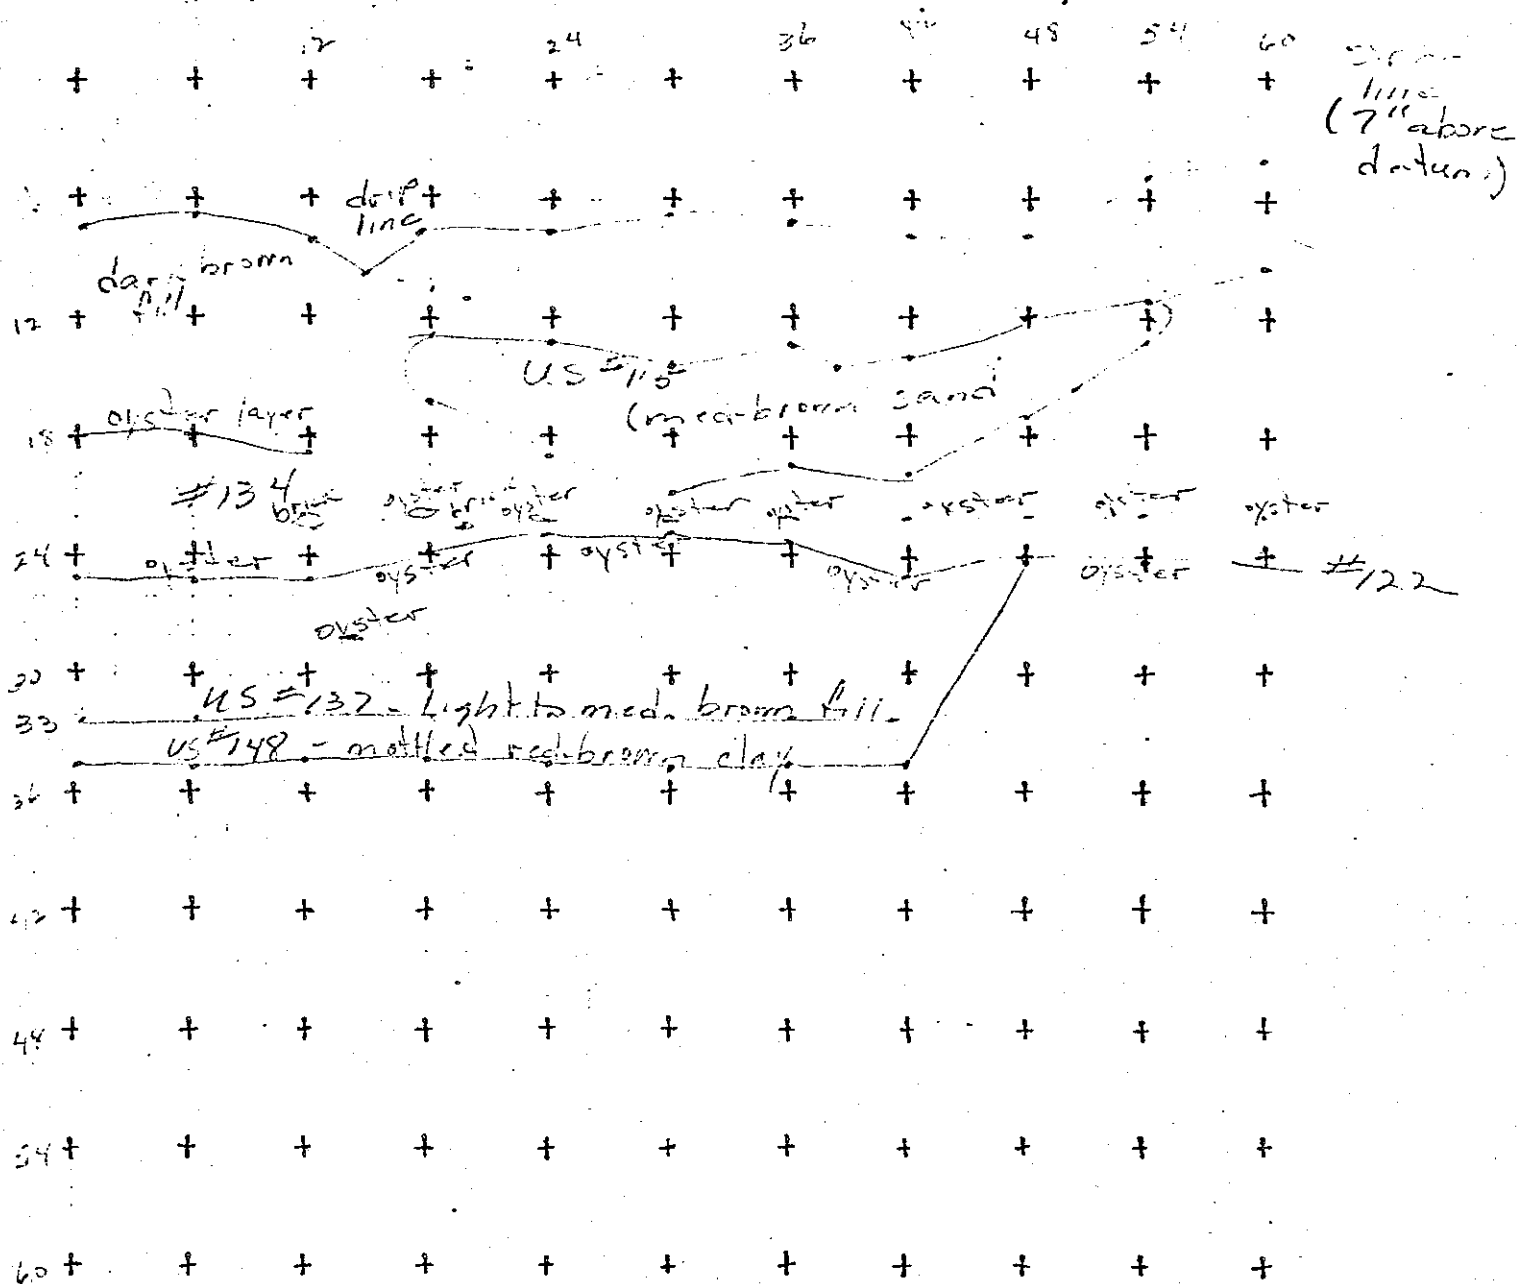 12 24 36 48 54 60
line
(7" above
datum)
drip
line
dark brown
fill
12
US #115
(med-brown sand
oyster layer
18
#134
brick oyster brick oyster oyster oyster oyster oyster oyster
24 oyster oyster oyster oyster oyster #122
oyster
30
US #137 - Light to med. brown fill
33
US #148 - mottled red-brown clay
36
42
48
54
60